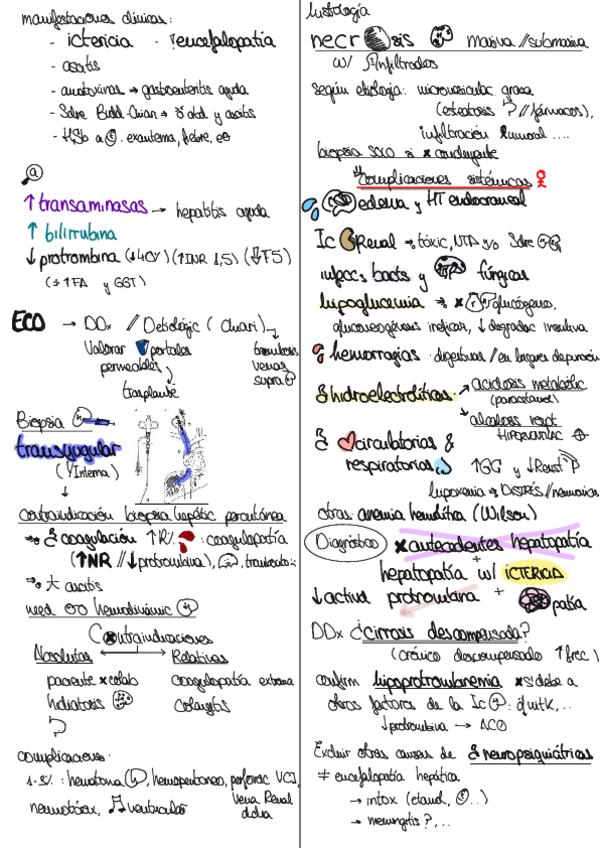 manifestaciones clínicas:
- ictericia · encefalopatía
- ascitis
- amatoxinas → gastroenteritis aguda
- Sdre Budd-Chiari → abd y ascitis
- exantema, fiebre, eo
a
↑ transaminasas → hepatitis aguda
↑ bilirrubina
↓ protrombina (↓40%) (↑INR 1,5) (↓↓F5)
(± ↑FA y GGT)
ECO → DDx // Detiológic (Chiari) →
Valorar portales
permeables
trombosis
venas
supra
trasplante
Biopsia
transyugular
(Interna)
↓
contraindicación biopsia hepátic percutánea
coagulación ↑R% : coagulopatía
(↑INR // ↓protrombina),
ascitis
med hemodinámic
Contraindicaciones
Absolutas Relativas
paciente x colab coagulopatía extrema
hidatosis colangitis
complicaciones:
hematoma, hemoperitoneo, perforac VCI,
neumotórax, ventricular
Vena Renal
dcha
histología
necrosis masiva // submasiva
w/ infiltrados
según etiología: microvesicular grasa
(esteatosis // fármacos),
infiltración tumoral ....
biopsia solo si x concluyente
complicaciones sistémicas
edema y HT endocraneal
Ic Renal → tóxic, NTA y/o Sdre
infecc bacts y fúngicas
hipoglucemia → x glucógeno,
gluconeogénesis ineficaz, ↓ degradac insulina
hemorragias · digestivas // en lugares de punción
hidroelectrolíticas: acidosis metabólic
(paracetamol)
alcalosis respt
circulatorias &
respiratorias ↑GC y ↓Resist P
hipoxemia → DISTRÉS // neumonía
otras: anemia hemolítica (Wilson)
Diagnóstico x antecedentes hepatopatía
+
hepatopatía w/ ICTERICIA
↓ activi protrombina + patía
DDx ¿cirrosis descompensada?
(crónico descompensado ↑frec)
confirm hipoprotrombinemia x se deba a
otros factores de la Ic : vitK,...
↓protrombina → ACO
Excluir otras causas de neuropsiquiátricas
≠ encefalopatía hepática
→ intox (etanol, ..)
→ meningitis?,...